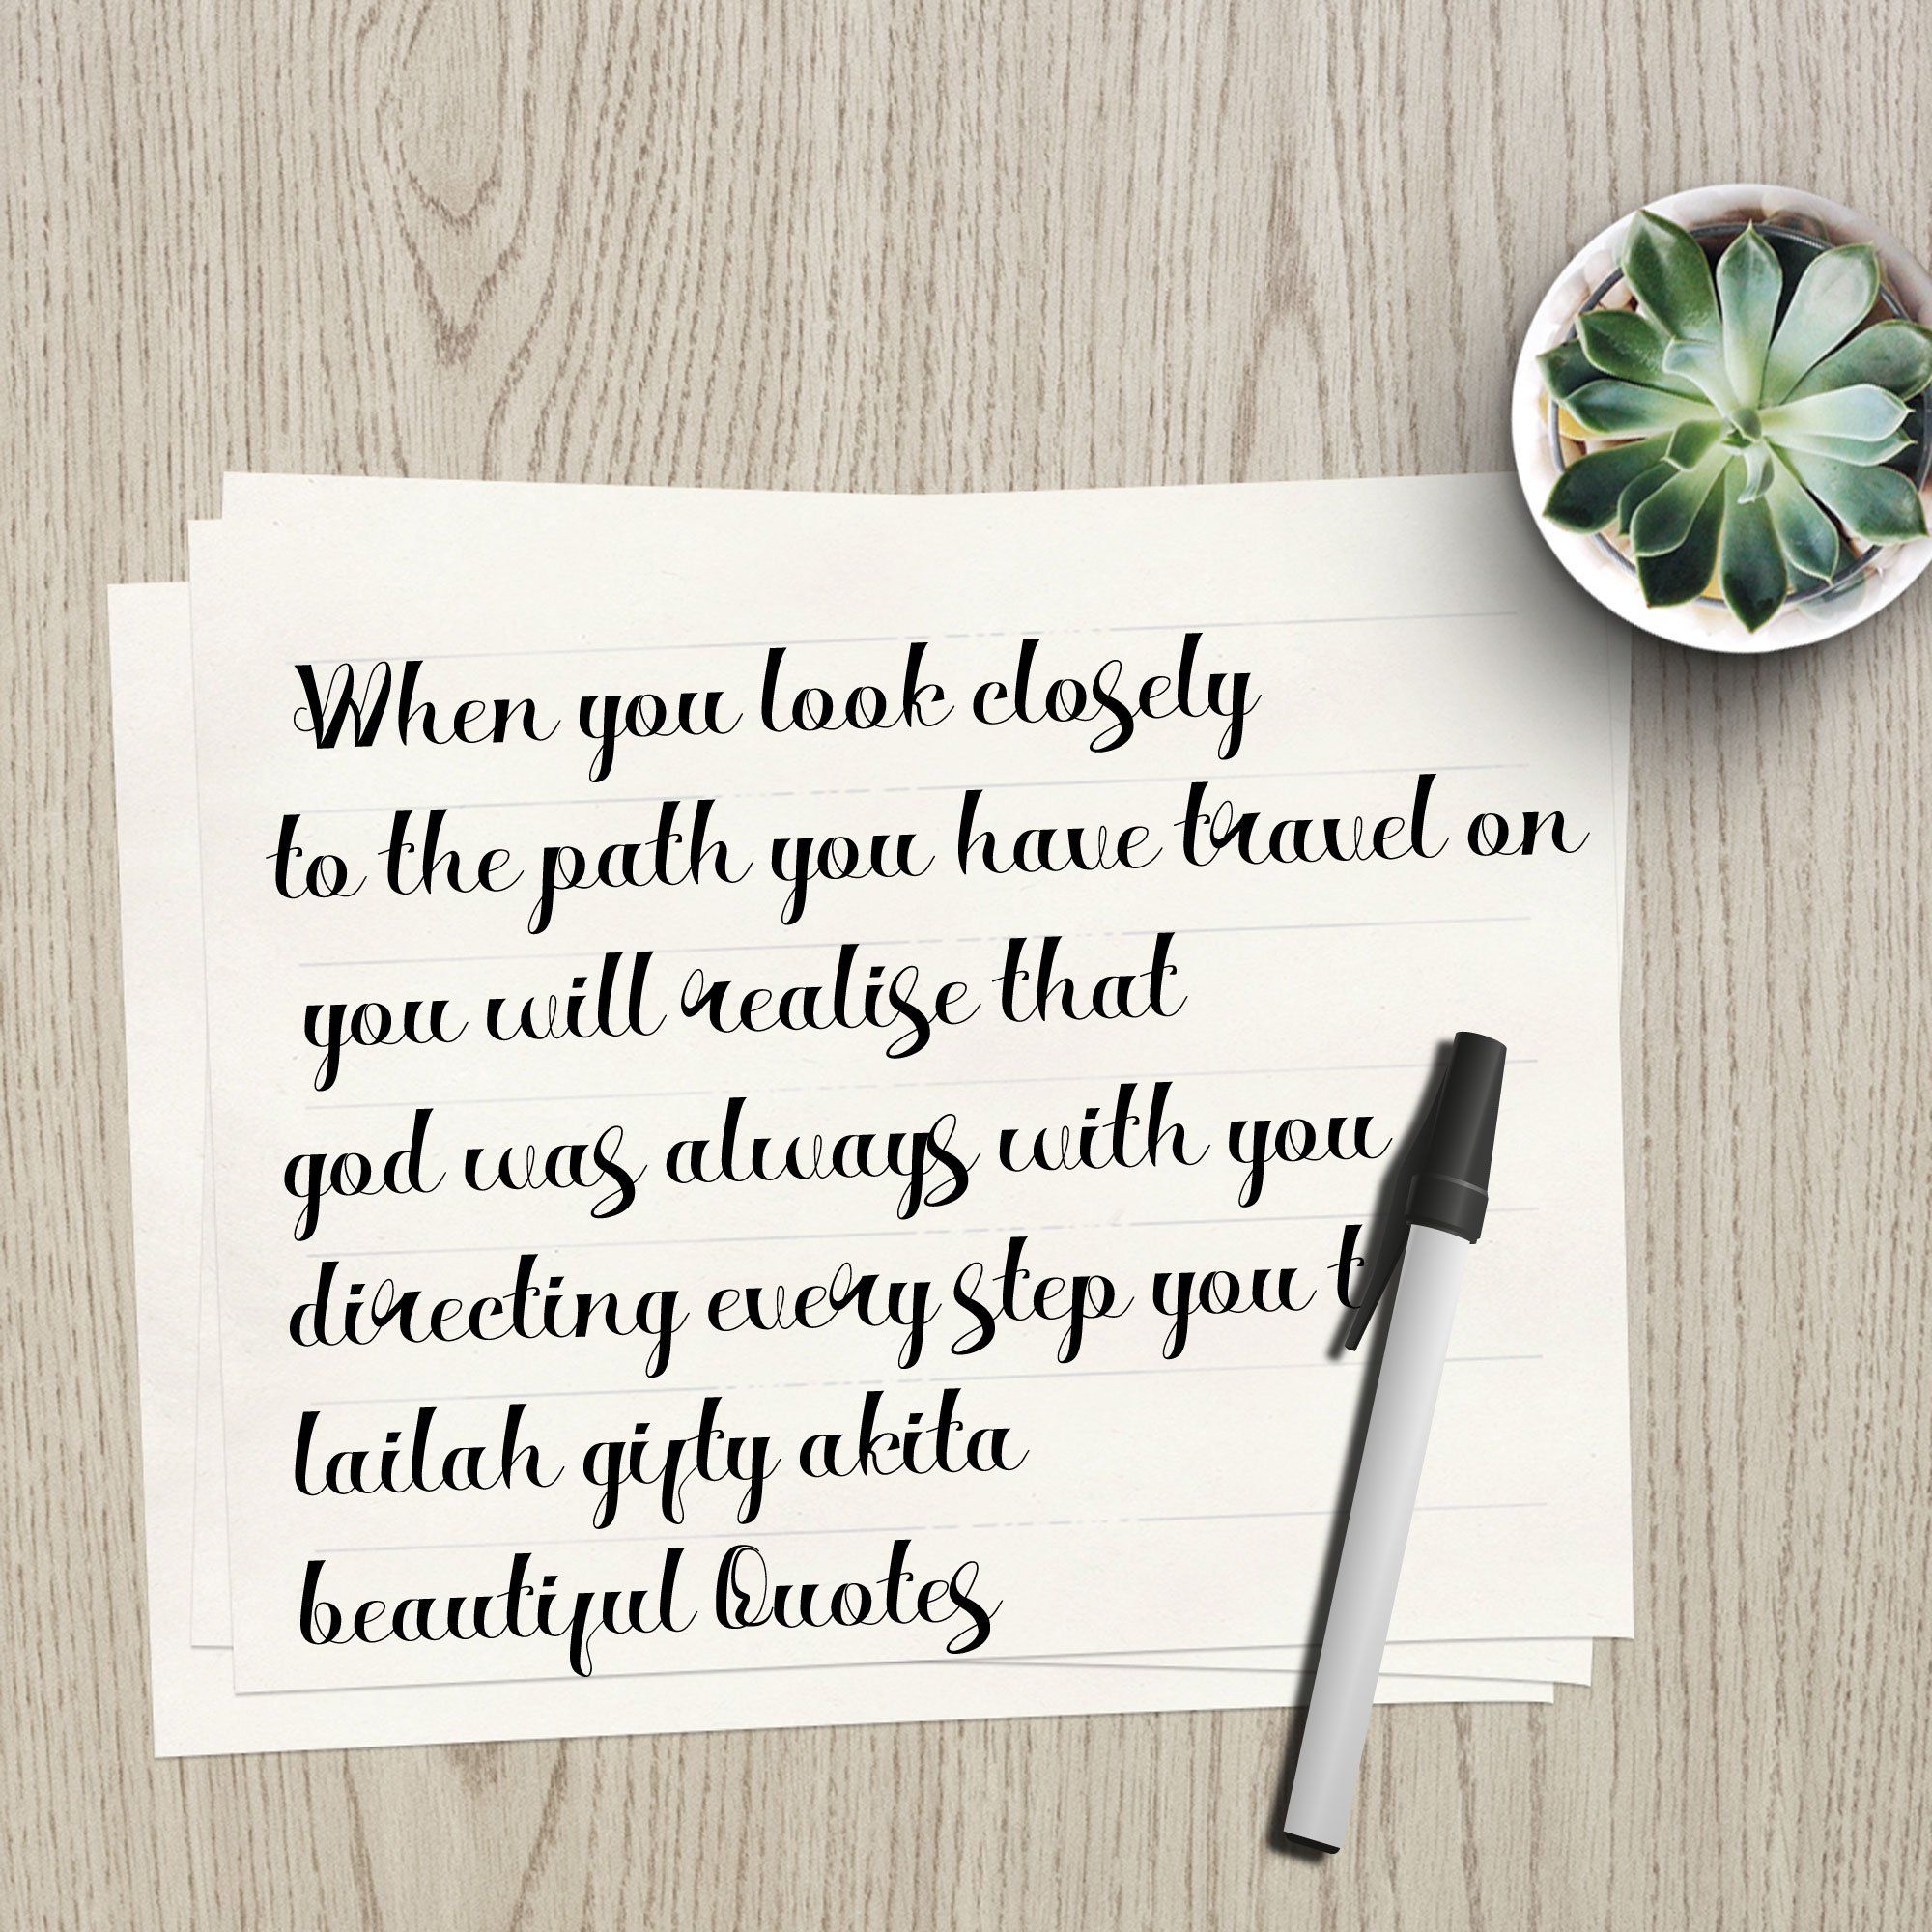 When you look closely
to the path you have travel on
you will realise that
god was always with you
directing every step you
lailah gifty akita
beautiful Quotes